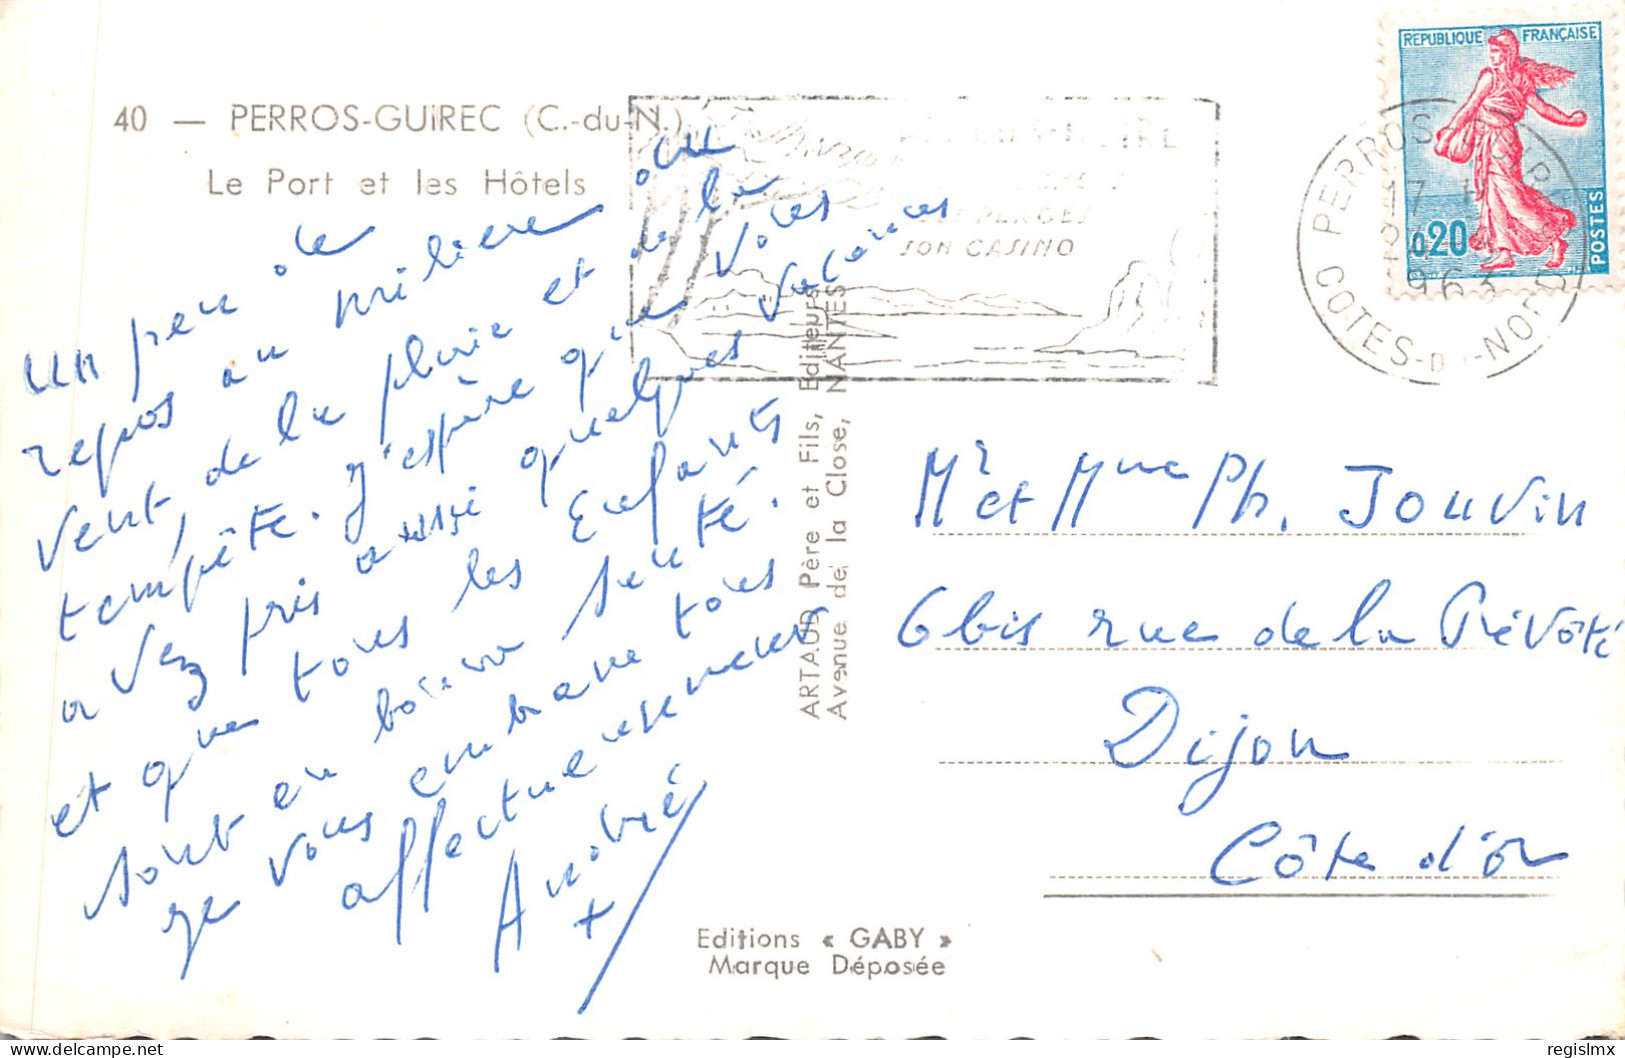 40 — PERROS-GUIREC (C.-du-N.)
Le Port et les Hôtels
un peu de
repos au milieu du
vent, de la pluie et de la
tempête. J'espère que vous
avez pris aussi quelques vacances
et que tous les enfants
sont en bonne santé.
Je vous embrasse tous
affectueusement
André
ARTAUD Père et Fils, Editeurs
Avenue de la Close, NANTES
Editions « GABY »
Marque Déposée
PLAGES
SON CASINO
PERROS-GUIREC
17 H
1963
COTES-DU-NORD
REPUBLIQUE FRANÇAISE
0,20
POSTES
Mr et Mme Ph. Jouvin
6 bis rue de la Prévôté
Dijon
Côte d'or
regislmx